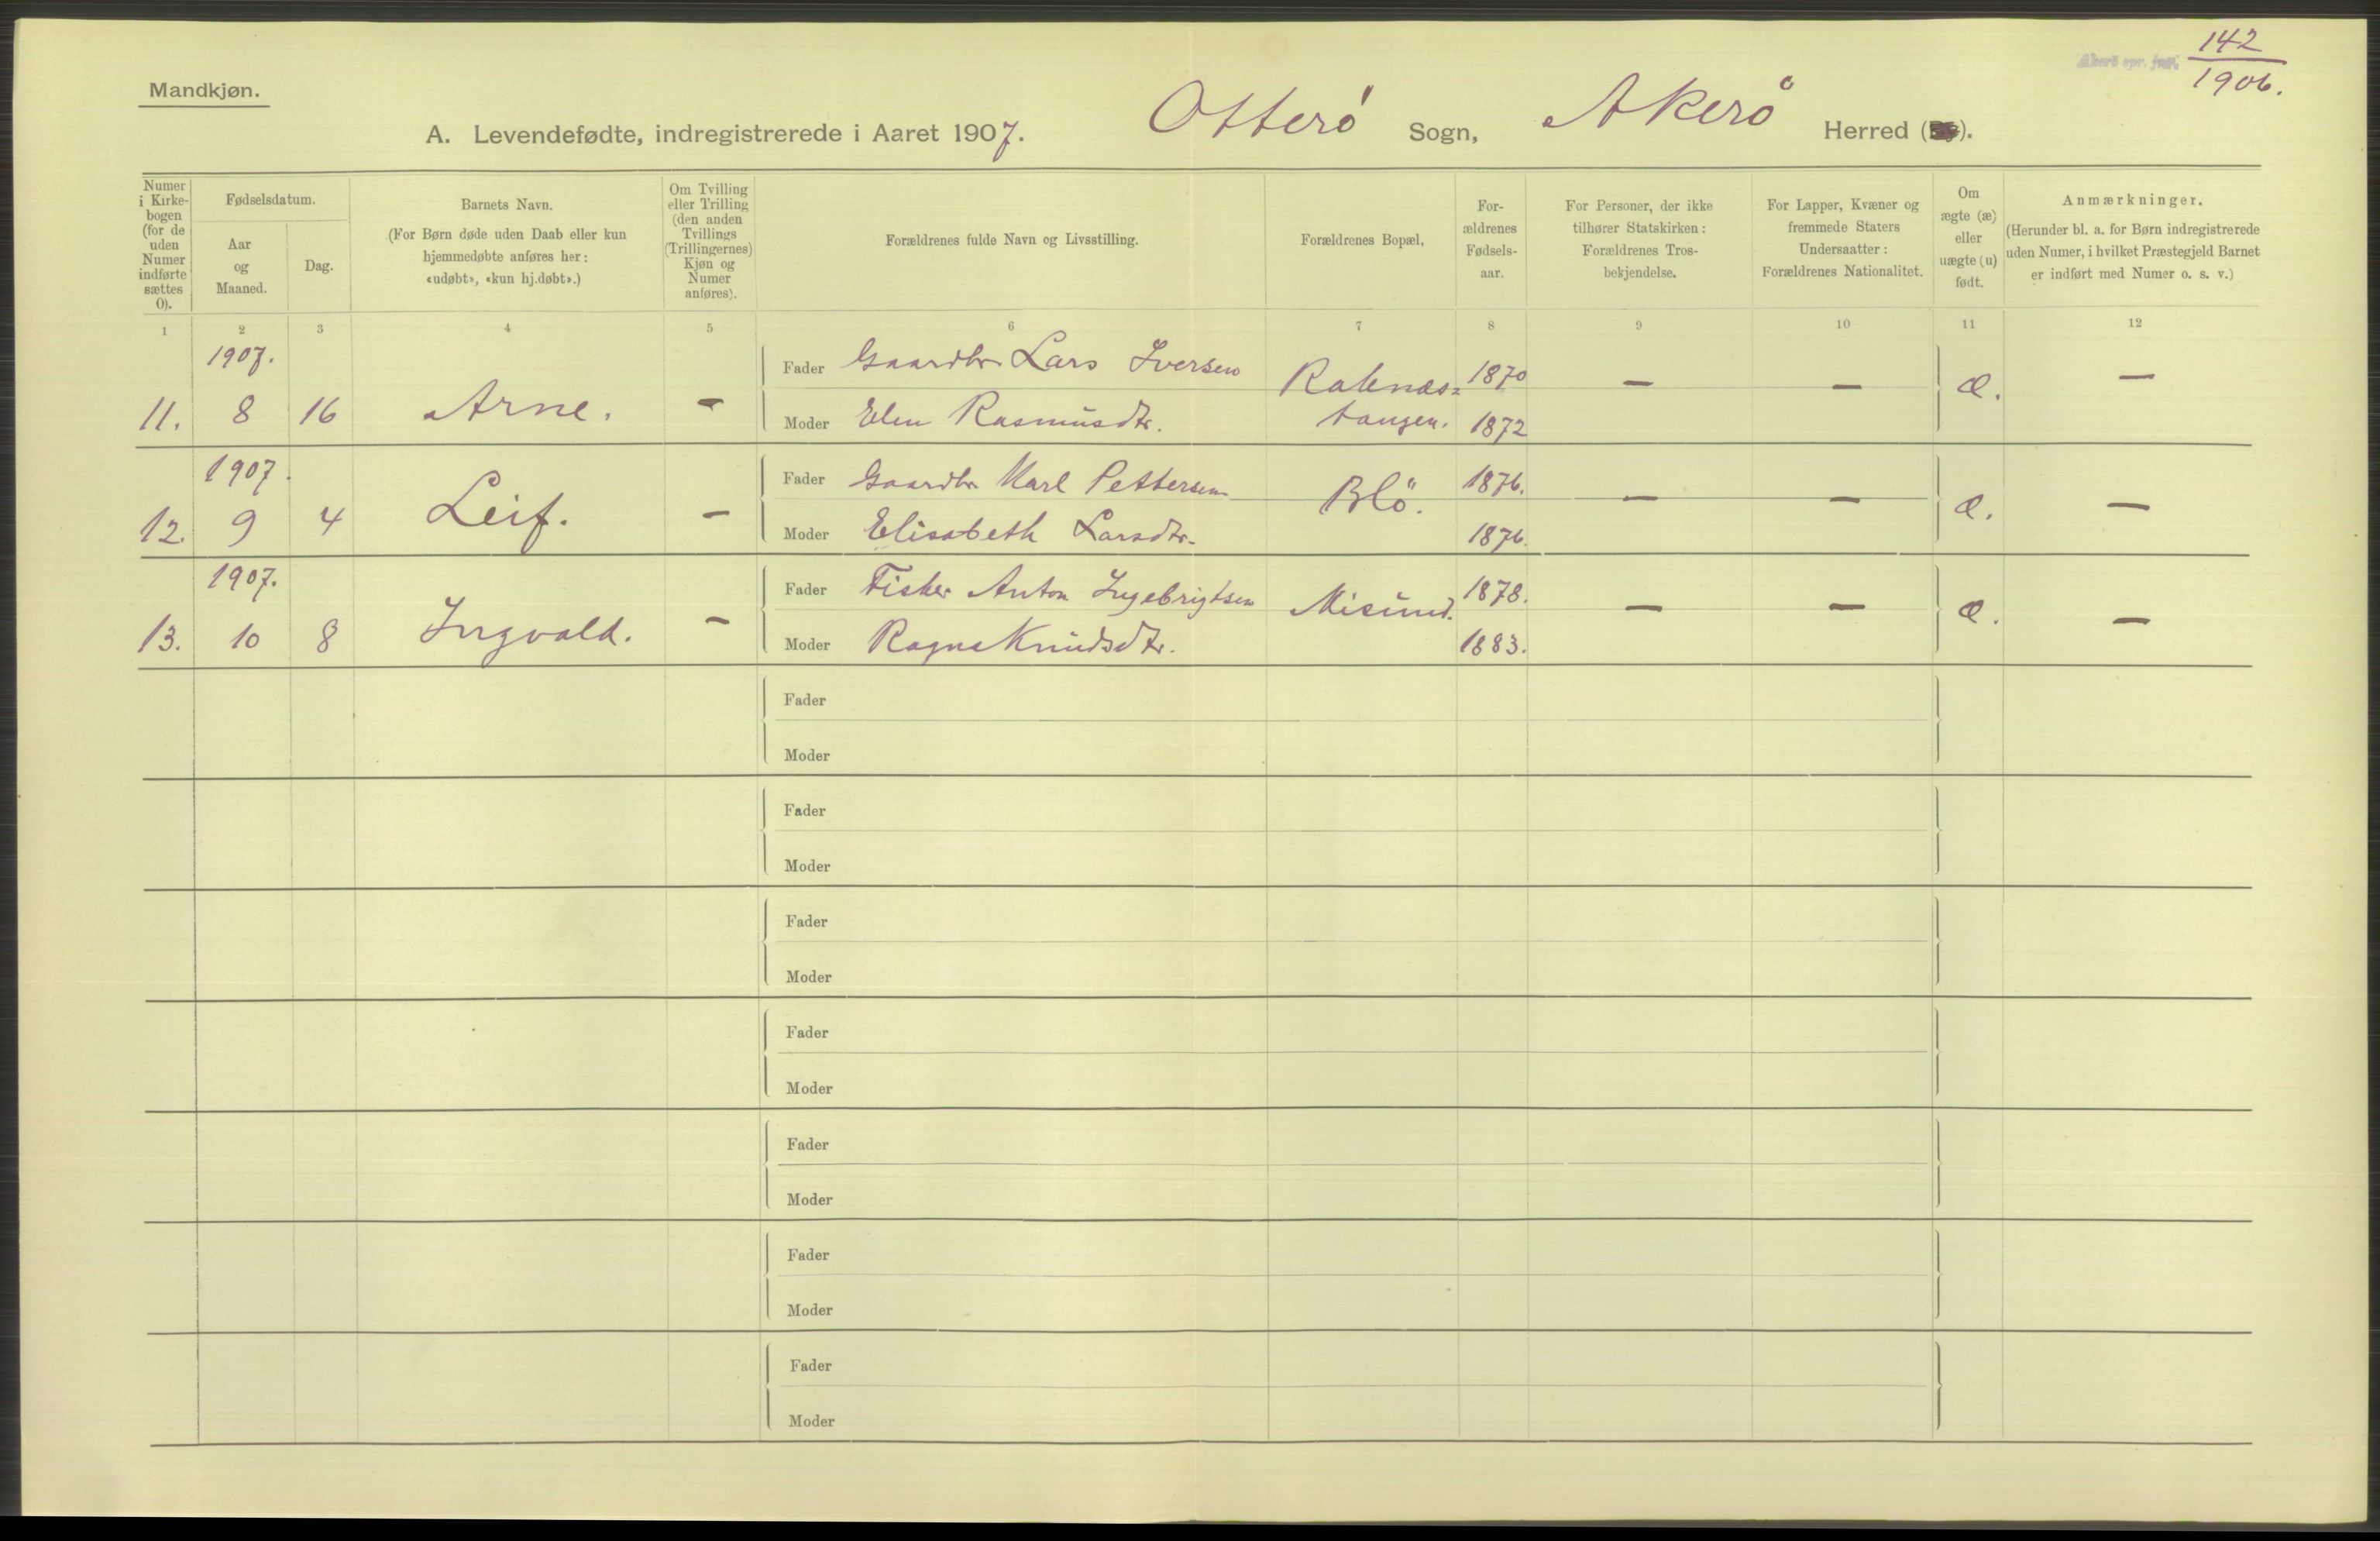 142
1906.
Mandkjøn.
A. Levendefødte, indregistrerede i Aaret 1907. Otterö Sogn, Akerö Herred ( ).
Numer i Kirke-bogen (for de uden Numer indførte sættes 0).
Fødselsdatum.
Aar og Maaned.
Dag.
Barnets Navn.
(For Børn døde uden Daab eller kun
hjemmedøbte anføres her:
«udøbt», «kun hj.døbt».)
Om Tvilling
eller Trilling
(den anden
Tvillings
(Trillingernes)
Kjøn og
Numer
anføres).
Forældrenes fulde Navn og Livsstilling.
Forældrenes Bopæl,
For-
ældrenes
Fødsels-
aar.
For Personer, der ikke
tilhører Statskirken:
Forældrenes Tros-
bekjendelse.
For Lapper, Kvæner og
fremmede Staters
Undersaatter:
Forældrenes Nationalitet.
Om
ægte (æ)
eller
uægte (u)
født.
Anmærkninger.
(Herunder bl. a. for Børn indregistrerede
uden Numer, i hvilket Præstegjeld Barnet
er indført med Numer o. s. v.)
1 2 3 4 5 6 7 8 9 10 11 12
1907.
Fader Gaardbr. Lars Iversen 1870
11. 8 16 Arne. - Raknæs= - - æ. -
Moder Elen Rasmusdtr. tangen. 1872
1907.
Fader Gaardbr. Karl Pettersen 1876.
12. 9 4 Leif. - Blö. - - æ. -
Moder Elisabeth Larsdtr. 1876.
1907.
Fader Fisker Anton Ingebrigtsen 1878.
13. 10 8 Ingvald. - Misund. - - æ. -
Moder Ragna Knudsdtr. 1883.
Fader
Moder
Fader
Moder
Fader
Moder
Fader
Moder
Fader
Moder
Fader
Moder
Fader
Moder